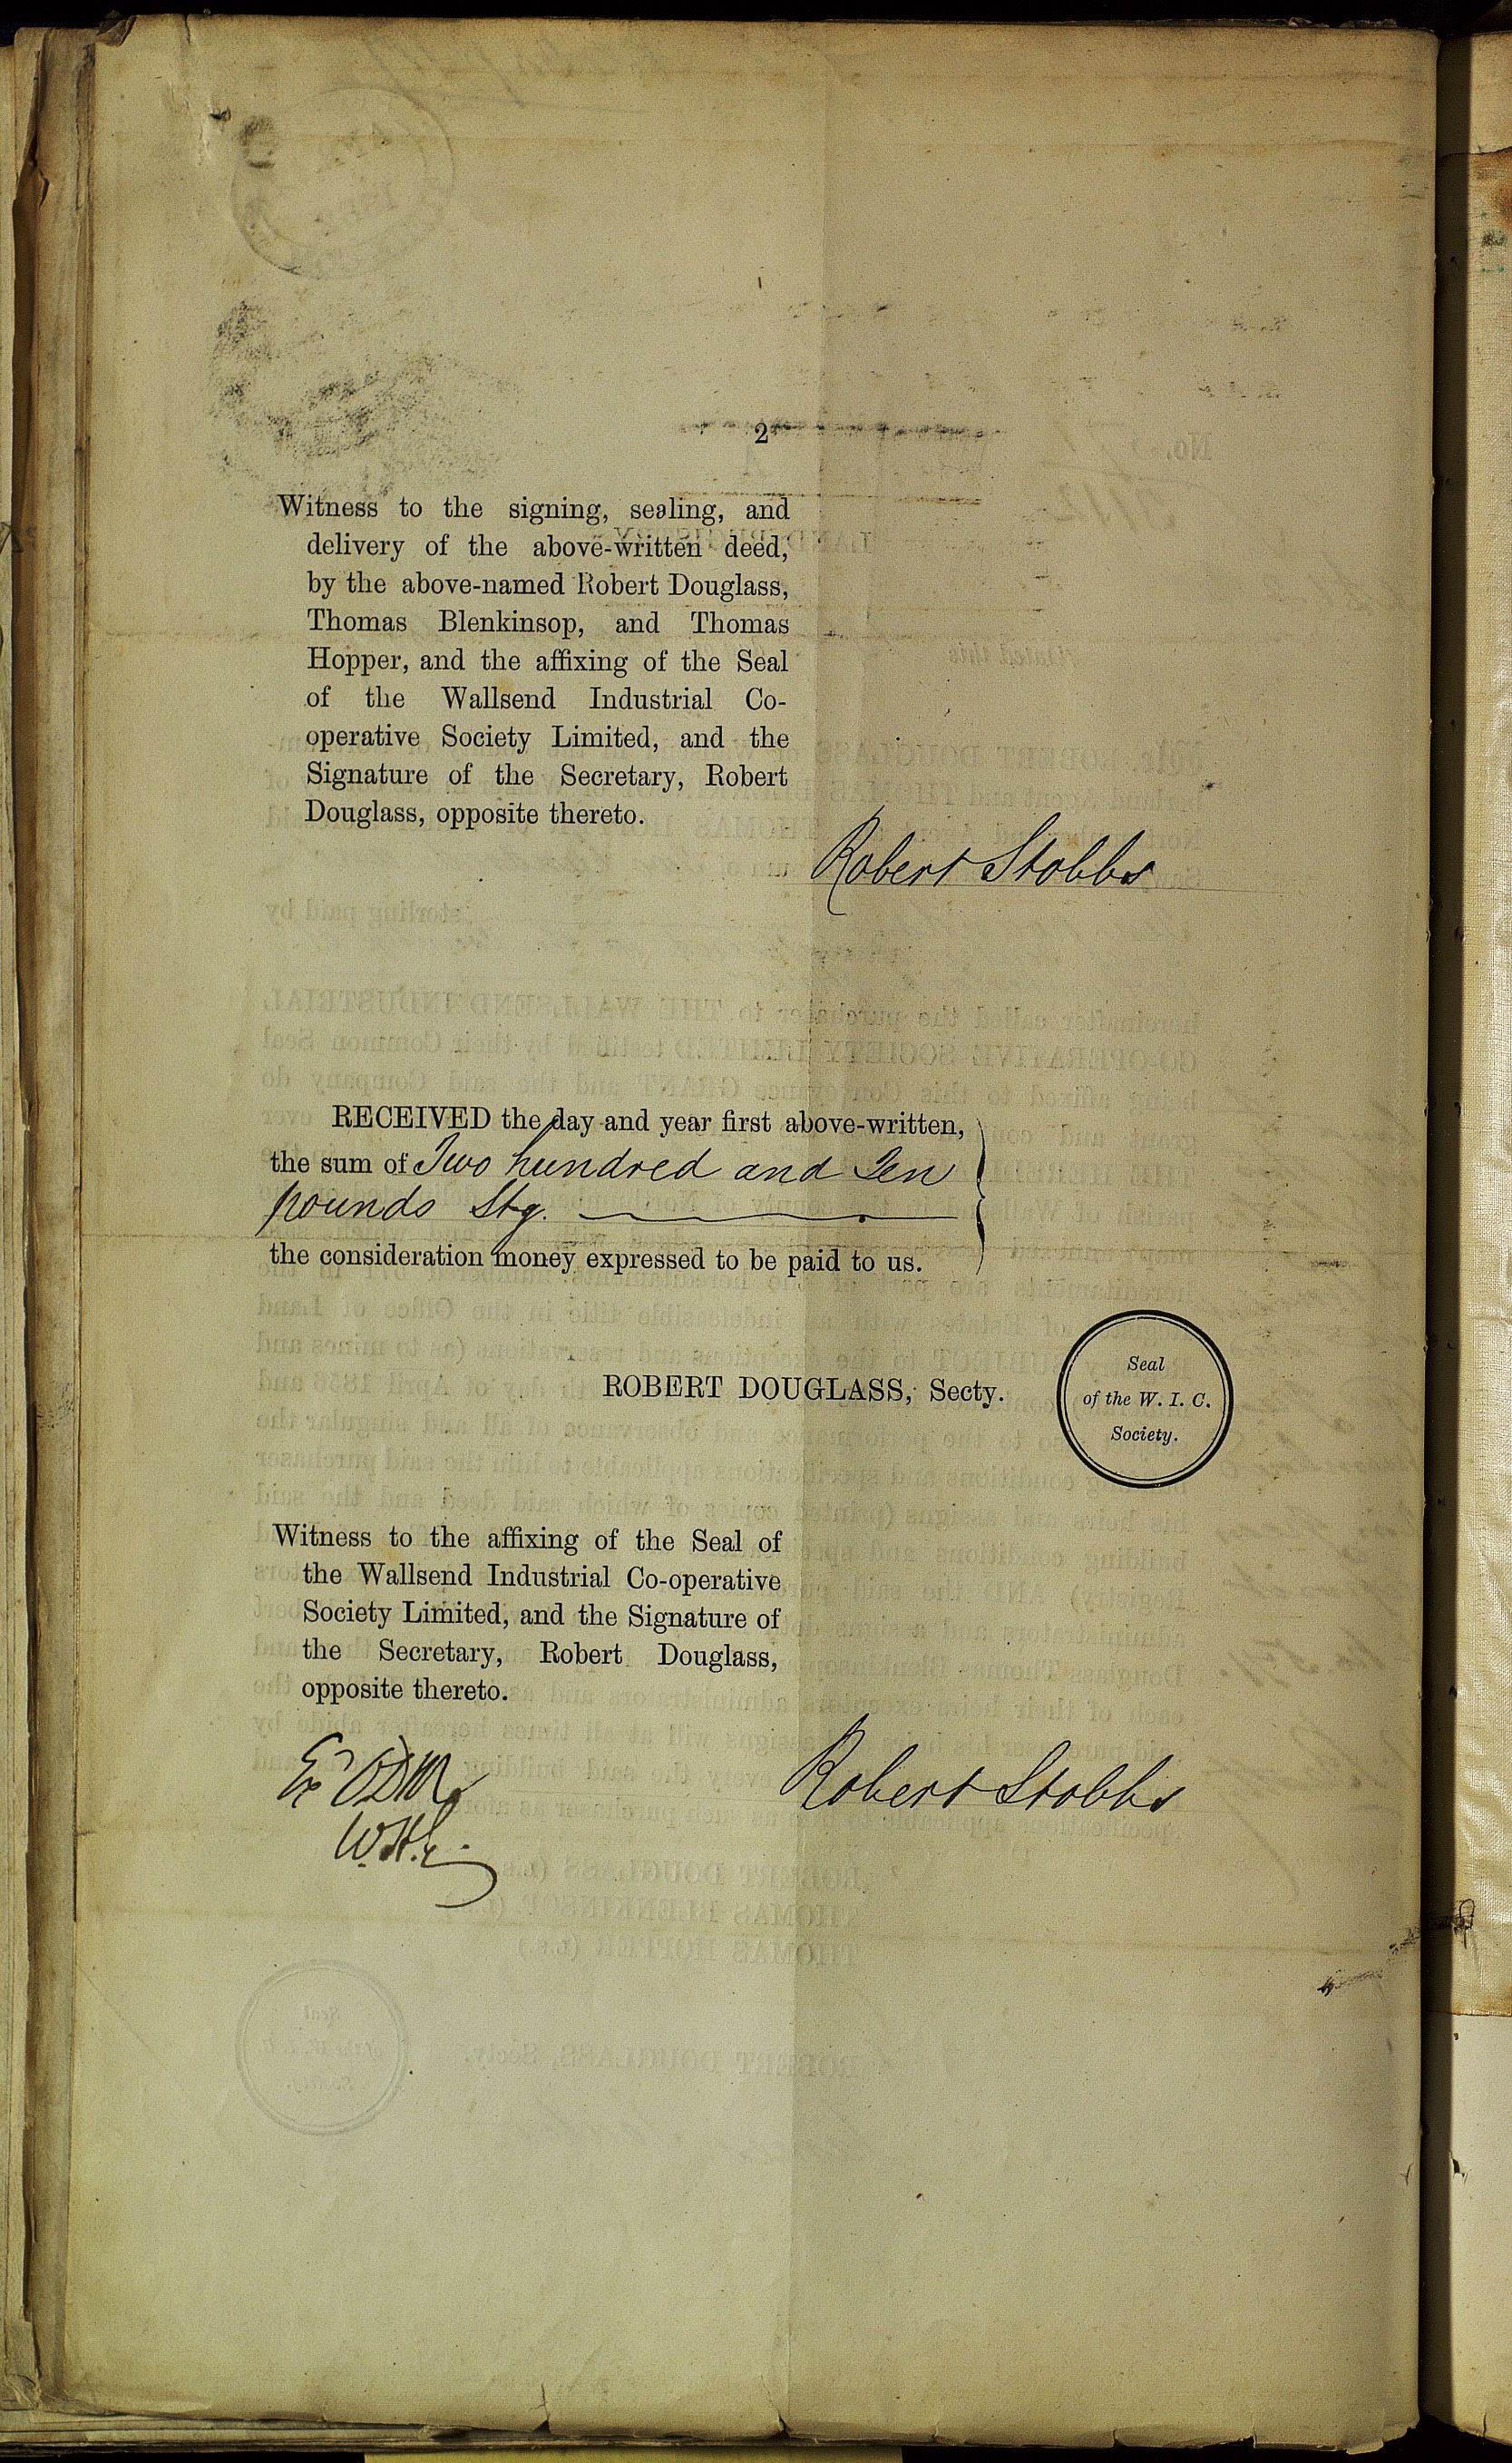 2
Witness to the signing, sealing, and
delivery of the above-written deed,
by the above-named Robert Douglass,
Thomas Blenkinsop, and Thomas
Hopper, and the affixing of the Seal
of the Wallsend Industrial Co-
operative Society Limited, and the
Signature of the Secretary, Robert
Douglass, opposite thereto.
Robert Stobbs
RECEIVED the day and year first above-written,
the sum of Two hundred and Ten
pounds Stg.
the consideration money expressed to be paid to us.
ROBERT DOUGLASS, Secty.
Seal
of the W. I. C.
Society.
Witness to the affixing of the Seal of
the Wallsend Industrial Co-operative
Society Limited, and the Signature of
the Secretary, Robert Douglass,
opposite thereto.
Robert Stobbs